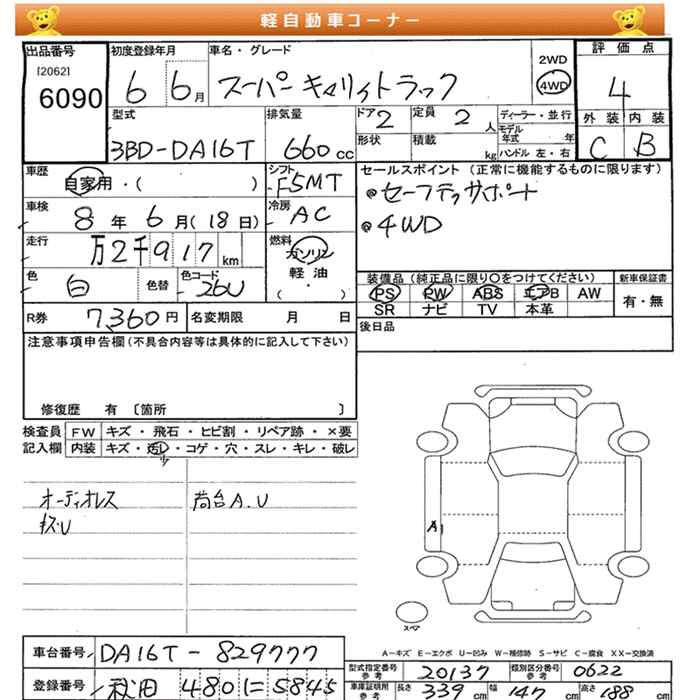 軽自動車コーナー
出品番号
[2062]
6090
初度登録年月
6 6月
車名・グレード
スーパーキャリィトラック
2WD
4WD
評価点
4
外装 内装
C B
型式
3BD-DA16T
排気量
660 cc
ドア 2
定員 2 人
形状
積載 kg
ディーラー・並行
モデル年式 年
ハンドル 左・右
車歴
自家用・( )
シフト
F5MT
セールスポイント(正常に機能するものに限ります)
@セーフティサポート
@4WD
車検
8年6月(18日)
冷房
AC
走行
万2千917km
燃料
ガソリン
軽油
( ・ )
色
白
色替
色コード
26U
装備品(純正品に限り○をつけてください)
PS PW ABS エアB AW
SR ナビ TV 本革
新車保証書
有・無
R券 7,360円
名変期限 月 日
後日品
注意事項申告欄(不具合内容等は具体的に記入して下さい)
修復歴 有 〔箇所 〕
検査員記入欄
FW キズ・飛石・ヒビ割・リペア跡・×要
内装 キズ・汚レ・コゲ・穴・スレ・キレ・破レ
オーディオレス
キズU
荷台A.U
A1
スペア
A-キズ E-エクボ U-凹み W-補修跡 S-サビ C-腐食 XX-交換済
車台番号 DA16T-829777
登録番号 秋田 480に5845
型式指定番号参考 20137
類別区分番号参考 0622
車庫証明用参考 長さ 339 cm 幅 147 cm 高さ 188 cm